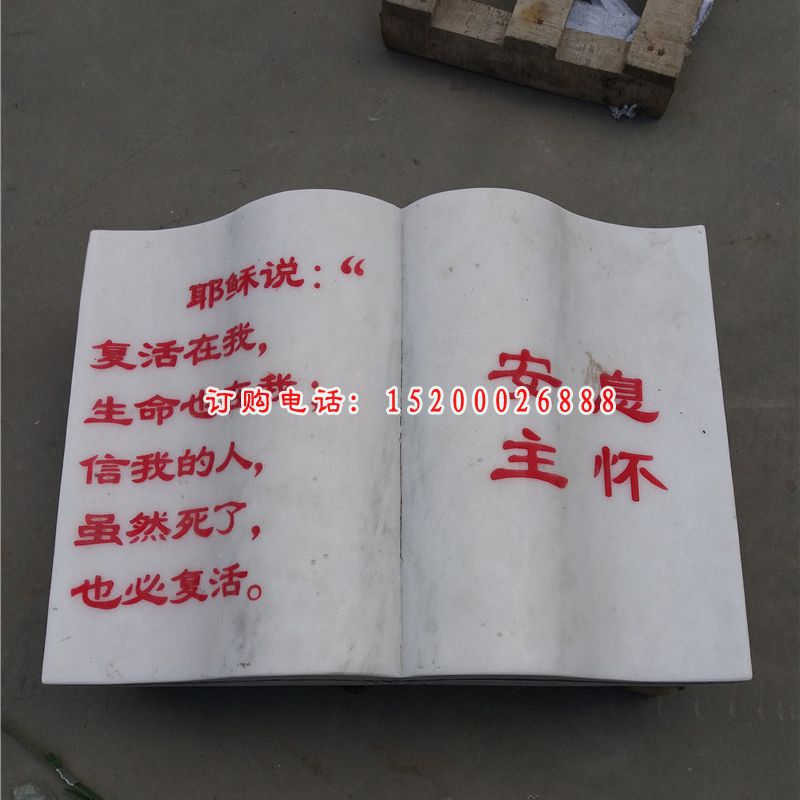 耶稣说：“
复活在我，
生命也在我；
信我的人，
虽然死了，
也必复活。
安息
主怀
订购电话：15200026888